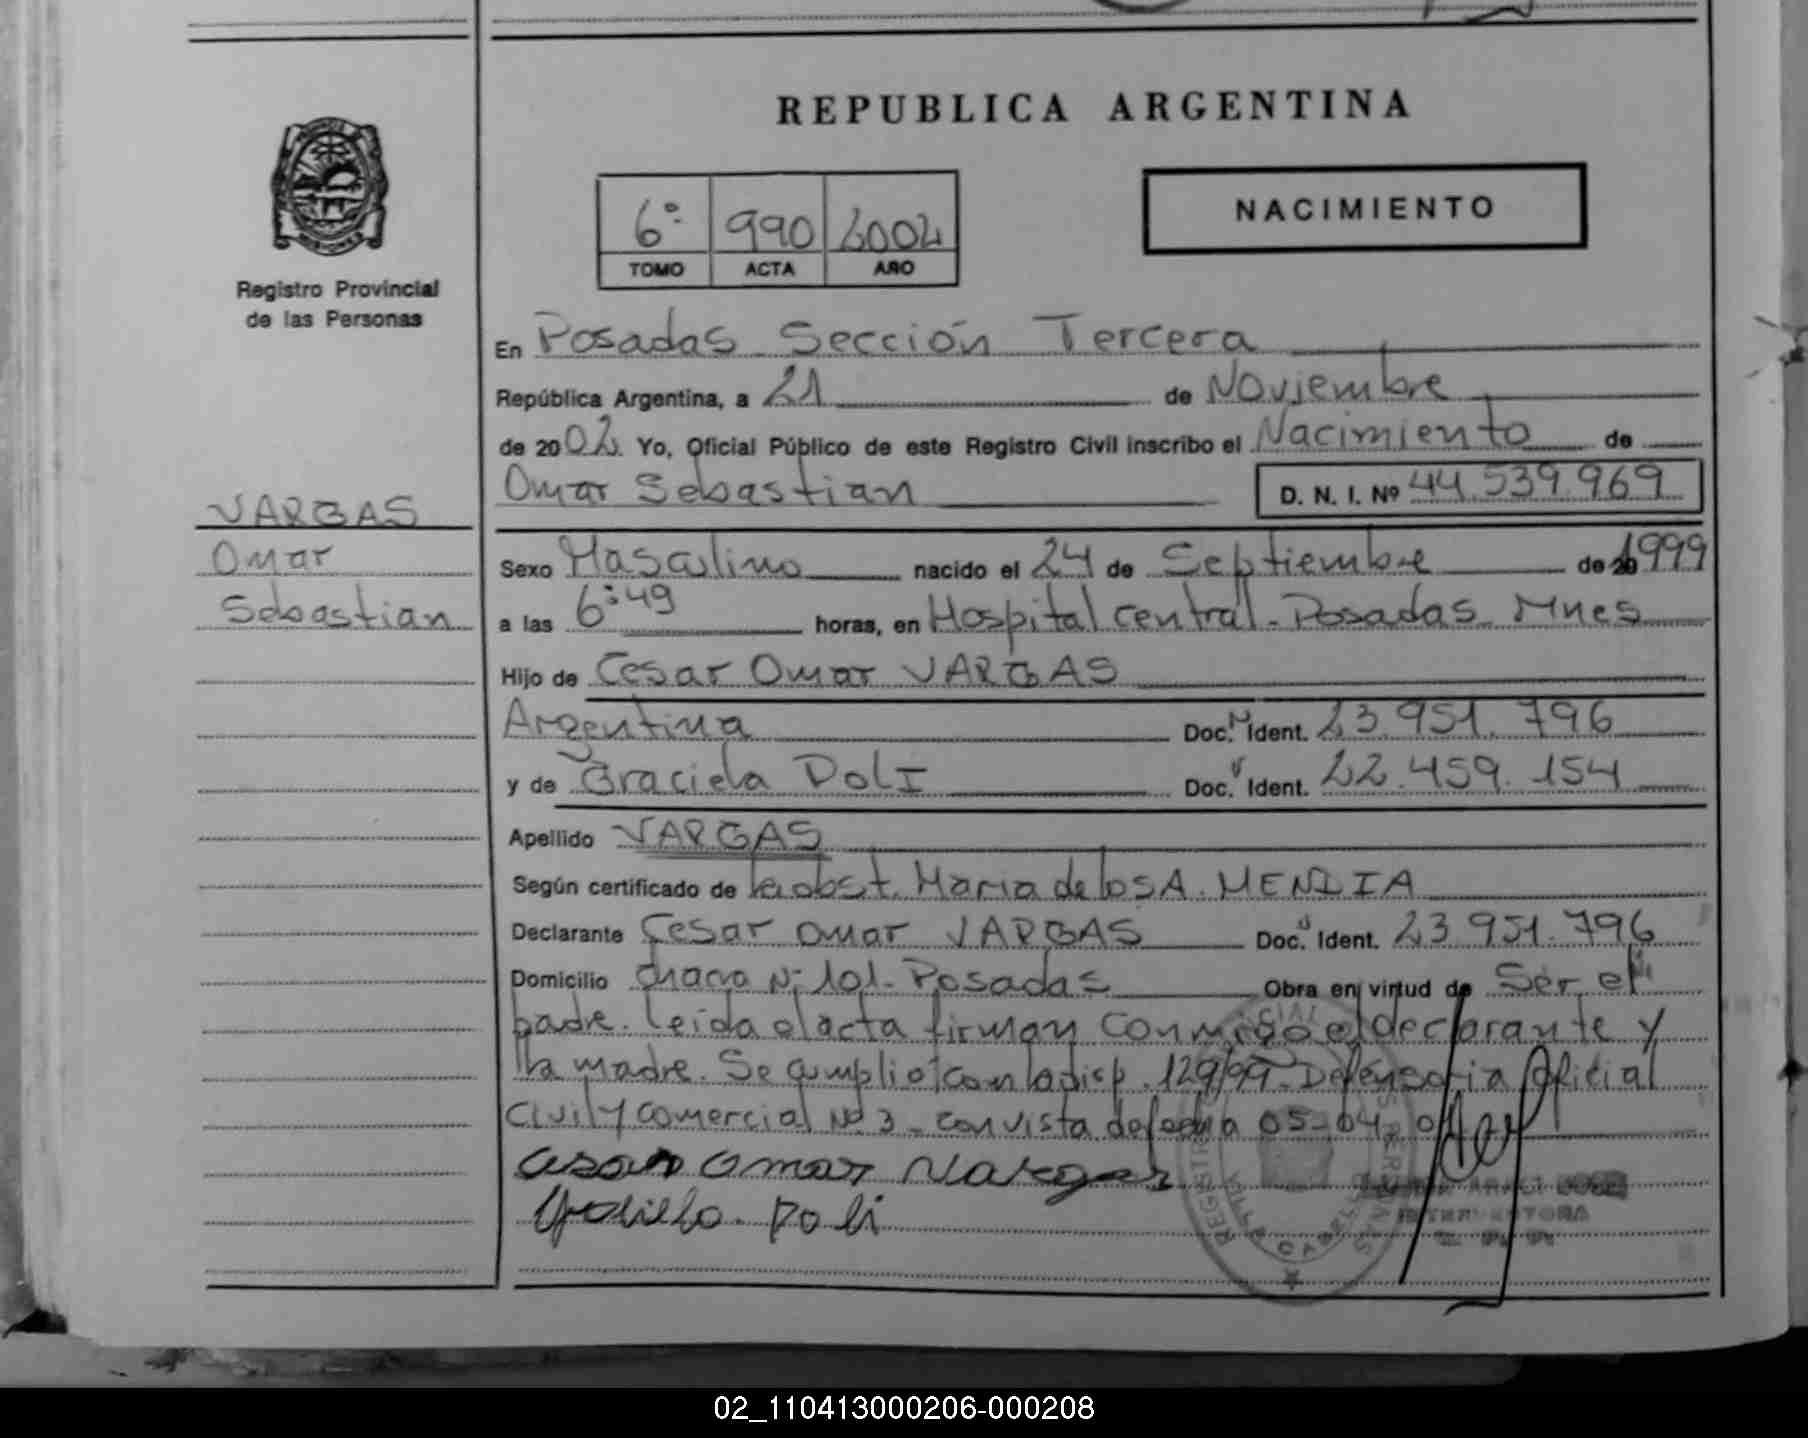 REPUBLICA ARGENTINA
NACIMIENTO
6º 990 2002
TOMO ACTA AÑO
Registro Provincial
de las Personas
En Posadas Sección Tercera
República Argentina, a 21 de Noviembre
de 2002 Yo, Oficial Público de este Registro Civil inscribo el Nacimiento de
Omar Sebastian D. N. I. Nº 44.539.969
VARGAS
Omar
Sebastian
Sexo Masculino nacido el 24 de Septiembre de 1999
a las 6:49 horas, en Hospital Central - Posadas Mnes
Hijo de Cesar Omar VARGAS
Argentina Doc. Ident. 23.951.796
y de Graciela DolI Doc. Ident. 22.459.154
Apellido VARGAS
Según certificado de obst. Maria de los A. MENDIA
Declarante Cesar Omar VARGAS Doc. Ident. 23.951.796
Domicilio chacra Nº 101 - Posadas Obra en virtud de Ser el
padre. Leida el acta firman conmigo el declarante y
la madre. Se cumplio con la Disp. 129/99 - Defensoria Oficial
Civil y Comercial Nº 3 - con vista de fecha 05-04
Cesar Omar Vargas
Doli
INTERVENTORA
02_110413000206-000208